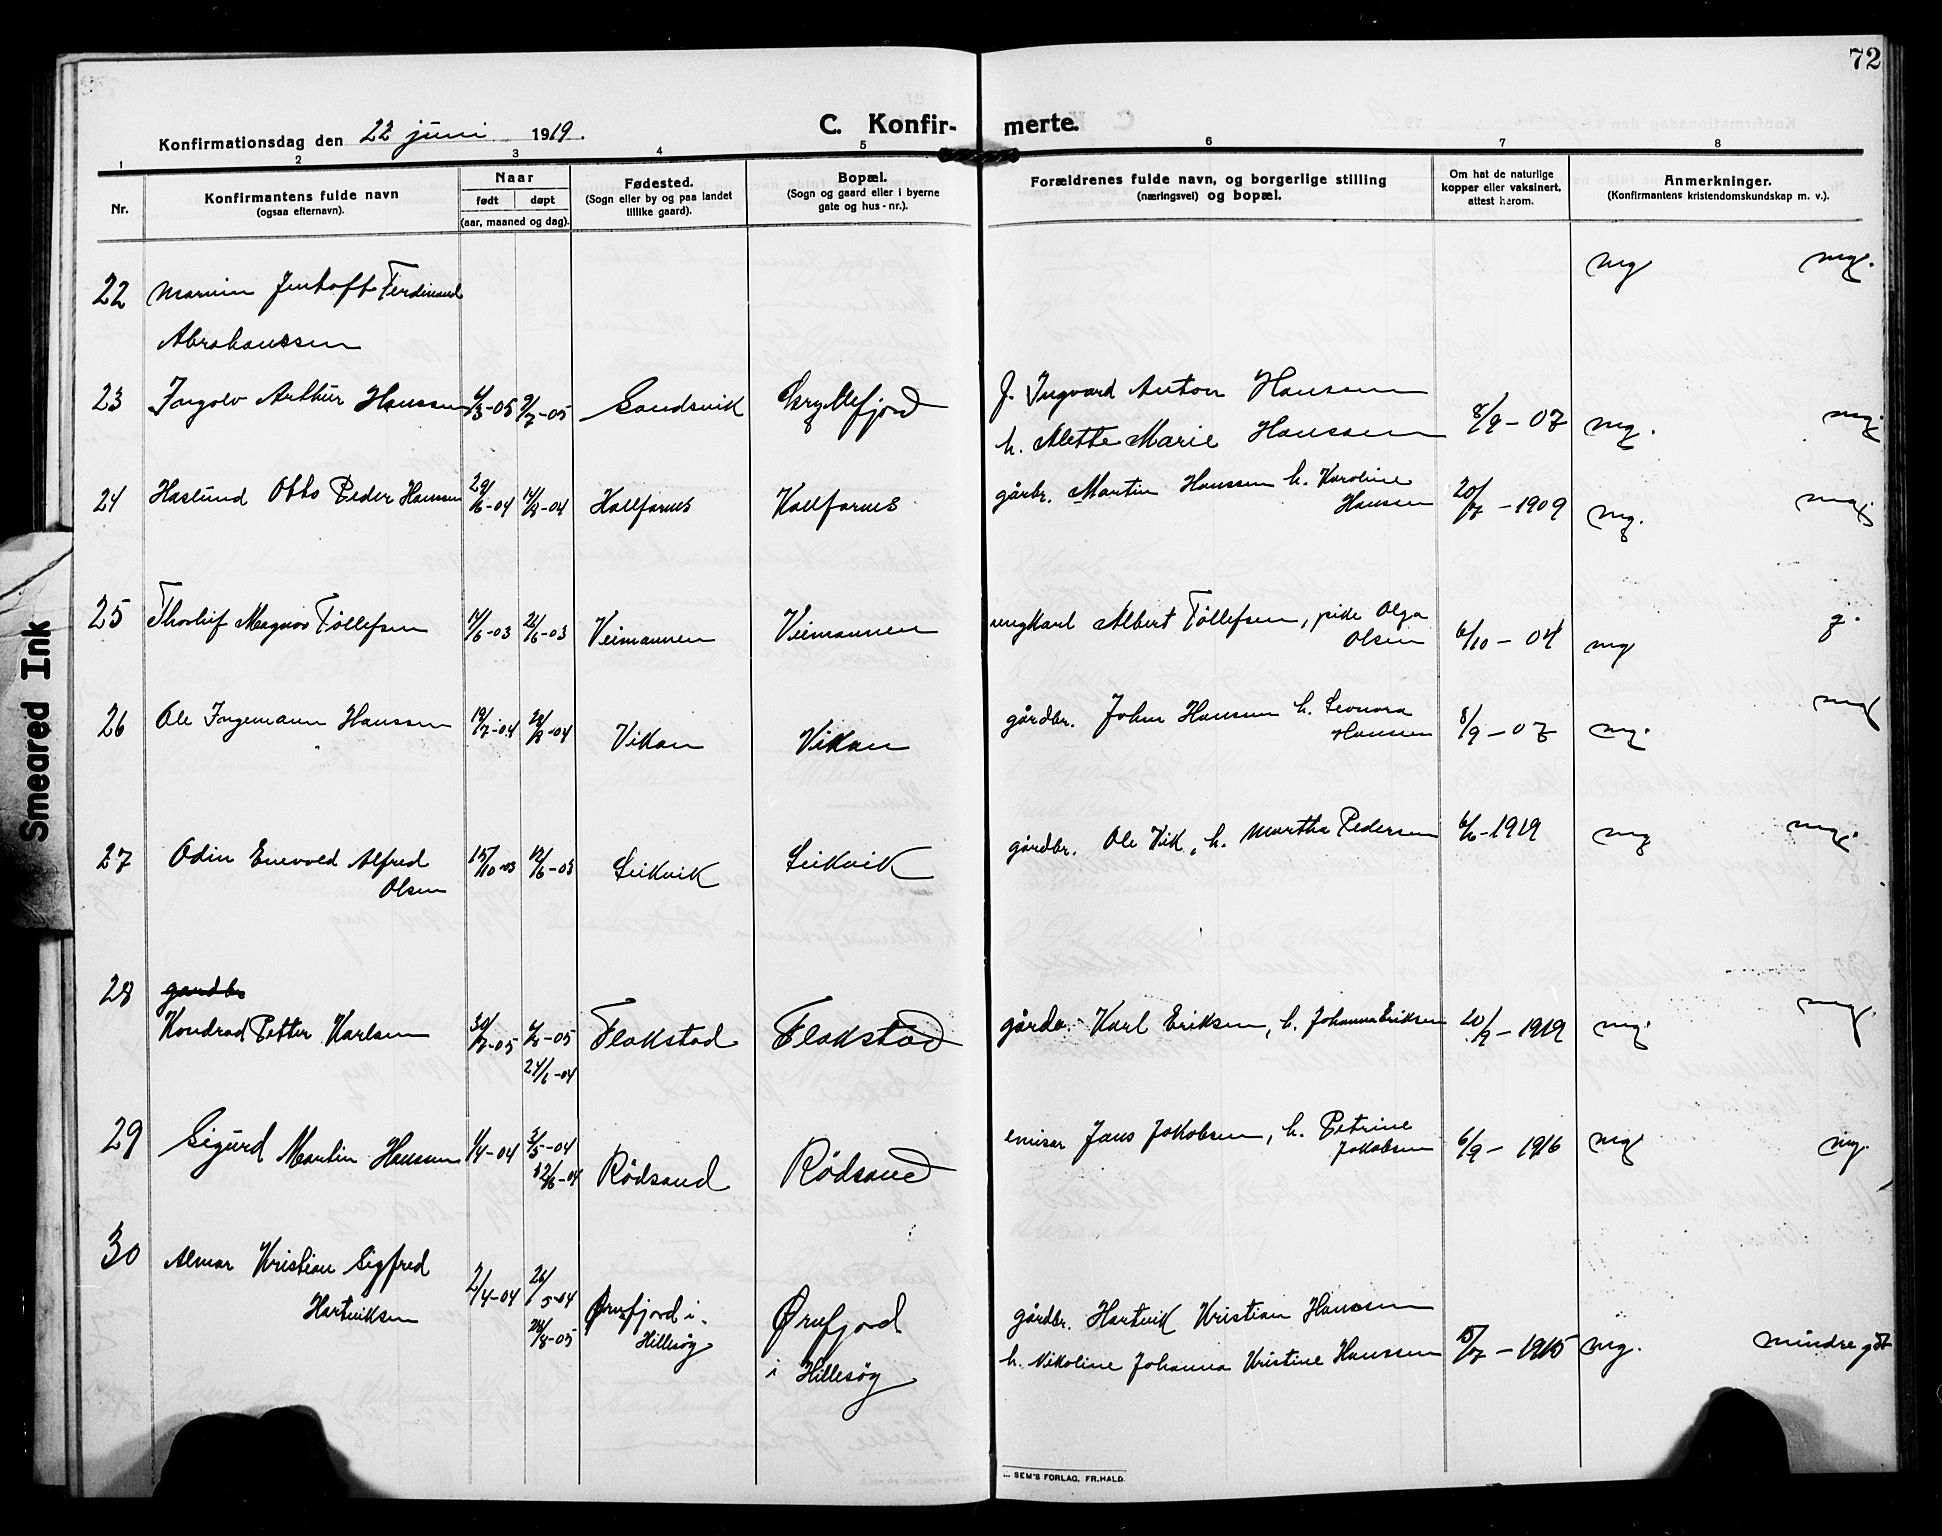 72
Konfirmationsdag den 22 juni 1919.
C. Konfir- merte.
1 2 3 4 5 6 7 8
Nr.
Konfirmantens fulde navn
(ogsaa efternavn).
Naar
født døpt
(aar, maaned og dag).
Fødested.
(Sogn eller by og paa landet
tillike gaard).
Bopæl.
(Sogn og gaard eller i byerne
gate og hus-nr.).
Forældrenes fulde navn, og borgerlige stilling
(næringsvei) og bopæl.
Om hat de naturlige
kopper eller vaksinert,
attest herom.
Anmerkninger.
(Konfirmantens kristendomskundskap m. v.).
22 Marvin Jentoft Ferdinand mg mg.
Abrahamsen
23 Ingolv Arthur Hanssen 4/3-05 9/7-05 Sandsvik Gryllefjord f. Ingvard Anton Hanssen
h. Alette Marie Hanssen 8/9-07 mg. mg.
24 Haslund Otto Peder Hansen 29/6-04 14/8-04 Kallfarnes Kallfarnes gårbr. Martin Hanssen h. Karoline
Hansen 20/7-1909 mg. mg.
25 Thorleif Magnus Tøllefsen 14/6-03 21/6-03 Veimannen Veimannen ungkarl Albert Tøllefsen, pike Olga
Olsen 6/10-04 mg g.
26 Ole Ingemann Hanssen 19/7-04 28/8-04 Vikan Vikan gårdbr. Johan Hansen h. Leonora
Hanssen 8/9-07 mg. mg
27 Odin Enevold Alfred
Olsen 15/10-03 12/6-03 Leikvik Leikvik gårdbr. Ole Vik, h. Martha Pedersen 6/6-1919 mg mg.
28 gardbr
Kondrad Petter Karlsen 30/7-05 Flakstad Flakstad gårdbr. Karl Eriksen, h. Johanna Eriksen 20/9-1919 mg. mg.
24/6-04
29 Sigurd Martin Hansen 1/4-04 3/5-04 Rødsand Rødsand emisær Jans Jakobsen, h. Petrine
Jakobsen 6/9-1916 mg mg.
12/6-04
30 Almar Kristian Sigfred
Hartviksen 2/4-04 26/5-04 Ørnfjord i.
Hillesøg Ørnfjord
i Hillesøg gårdbr. Hartvik Kristian Hanssen
28/8-05
h. Nikoline Johanna Kristine Hanssen 15/7-1915 mg. mindre gdt
... SEM'S FORLAG, FR.HALD.
Smeared Ink